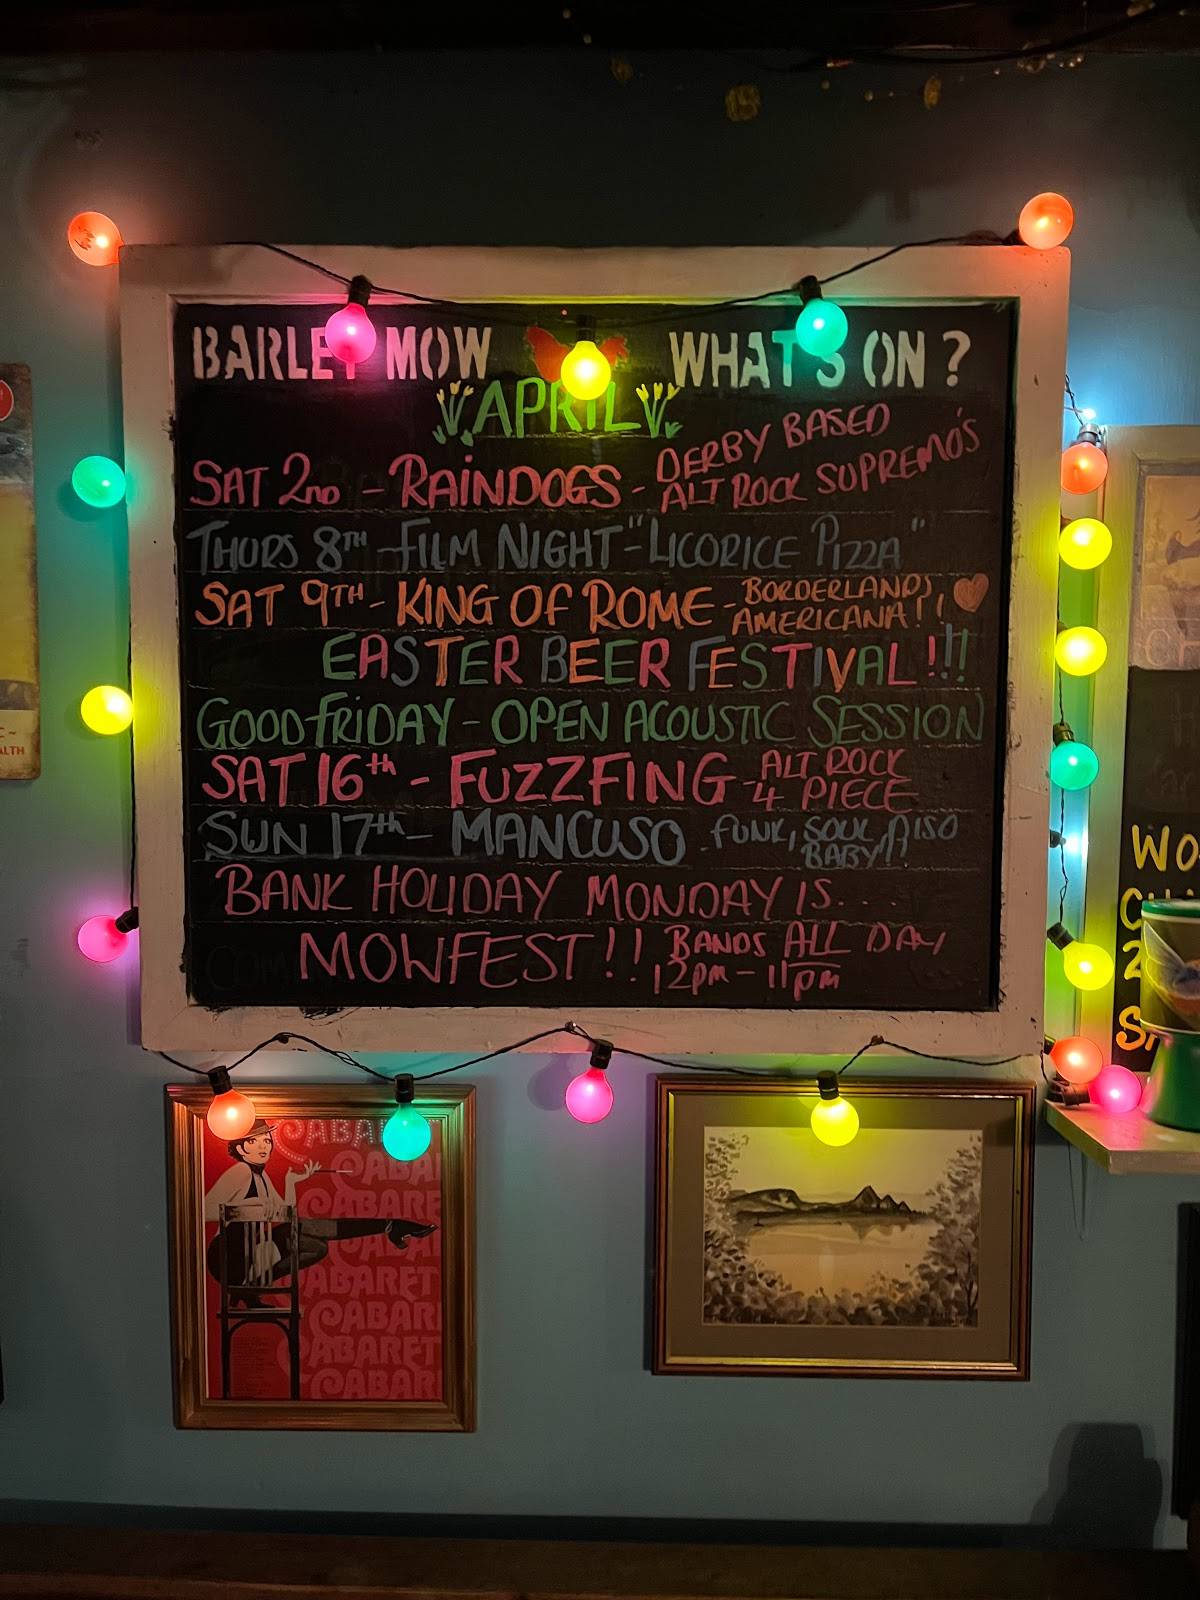 BARLEY MOW WHAT'S ON?
APRIL
SAT 2ND - RAINDOGS - DERBY BASED
ALT ROCK SUPREMO'S
THURS 8TH - FILM NIGHT - "LICORICE PIZZA"
SAT 9TH - KING OF ROME - BORDERLANDS,
AMERICANA!!
EASTER BEER FESTIVAL!!!!
GOOD FRIDAY - OPEN ACOUSTIC SESSION
SAT 16th - FUZZFING - ALT ROCK
4 PIECE
SUN 17th - MANCUSO - FUNK, SOUL, DISO
BABY!!
BANK HOLIDAY MONDAY IS....
MOWFEST!! BANDS ALL DAY
12pm - 11pm
CABARET
CABARET
CABARET
CABARET
CABARET
CABARET
CABARET
CABARET
ALTH
WO
2